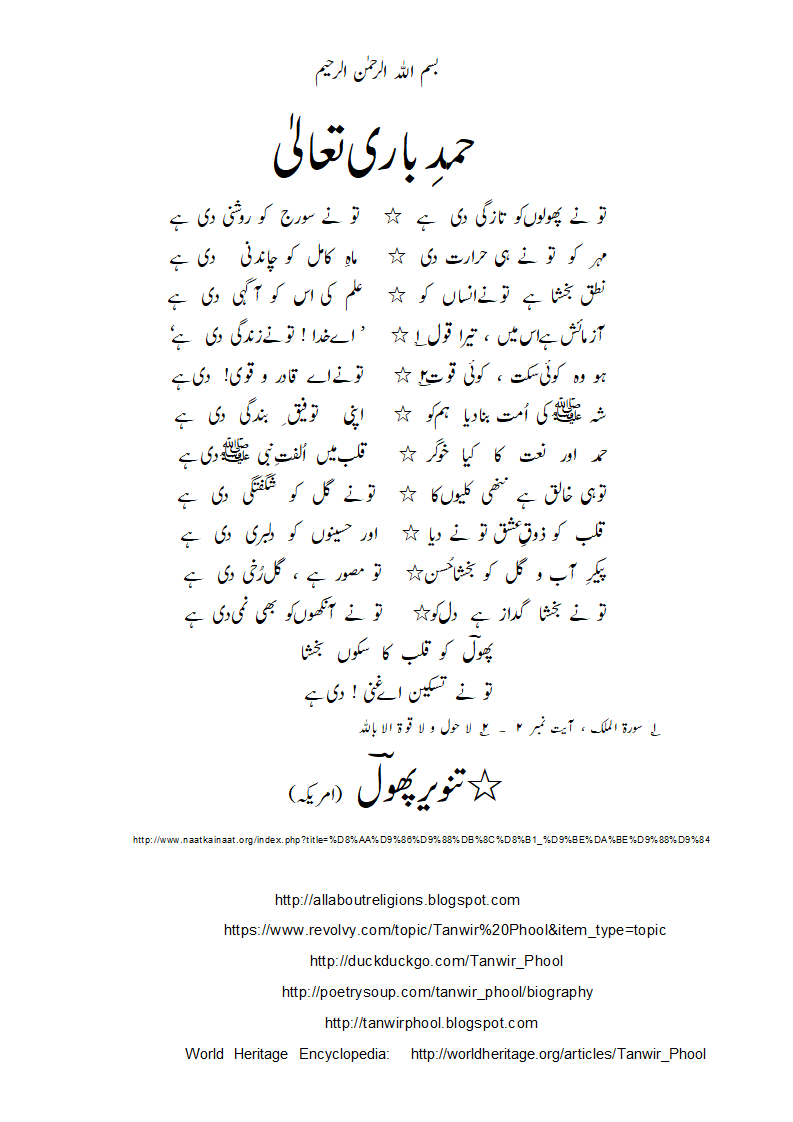 بسم اللہ الرحمٰن الرحیم
حمدِ باری تعالیٰ
تو نے پھولوں کو تازگی دی ہے ☆ تو نے سورج کو روشنی دی ہے
مہر کو تو نے ہی حرارت دی ☆ ماہِ کامل کو چاندنی دی ہے
نطق بخشا ہے تونے انساں کو ☆ علم کی اس کو آگہی دی ہے
آزمائش ہے اس میں ، تیرا قول ۱؎ ☆ ’ اے خدا ! تو نے زندگی دی ہے‘
ہو وہ کوئی سکت ، کوئی قوت ۲؎ ☆ تونے اے قادر و قوی! دی ہے
شہ ﷺ کی اُمت بنادیا ہم کو ☆ اپنی توفیقِ بندگی دی ہے
حمد اور نعت کا کیا خوگر ☆ قلب میں اُلفتِ نبی ﷺ دی ہے
تو ہی خالق ہے ننھی کلیوں کا ☆ تونے گل کو شگفتگی دی ہے
قلب کو ذوقِ عشق تو نے دیا ☆ اور حسینوں کو دلبری دی ہے
پیکرِ آب و گل کو بخشا حُسن ☆ تو مصور ہے ، گل رُخی دی ہے
تو نے بخشا گداز ہے دل کو ☆ تو نے آنکھوں کو بھی نمی دی ہے
پھولؔ کو قلب کا سکوں بخشا
تو نے تسکین اے غنی ! دی ہے
۱؎ سورۃ الملک ، آیت نمبر ۲ ۔ ۲؎ لا حول و لا قوۃ الا باللہ
☆ تنویر پھولؔ (امریکہ)
http://www.naatkainaat.org/index.php?title=%D8%AA%D9%86%D9%88%DB%8C%D8%B1_%D9%BE%DA%BE%D9%88%D9%84
http://allaboutreligions.blogspot.com
https://www.revolvy.com/topic/Tanwir%20Phool&item_type=topic
http://duckduckgo.com/Tanwir_Phool
http://poetrysoup.com/tanwir_phool/biography
http://tanwirphool.blogspot.com
World Heritage Encyclopedia: http://worldheritage.org/articles/Tanwir_Phool